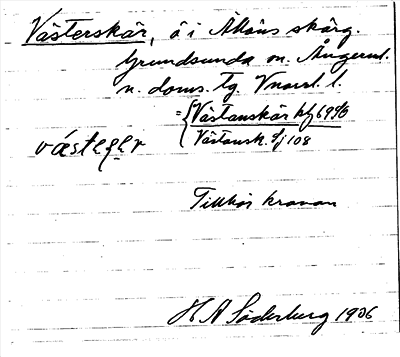 Västerskär, ö i Ållöns skärg.
Grundsunda sn. Ångerml.
n. doms. tg. Vnorrl. l.
= { Västanskär kbf 69 SO
Västansk. Sj 108
västeȩr
Tillhör kronan
H A Söderberg 1906